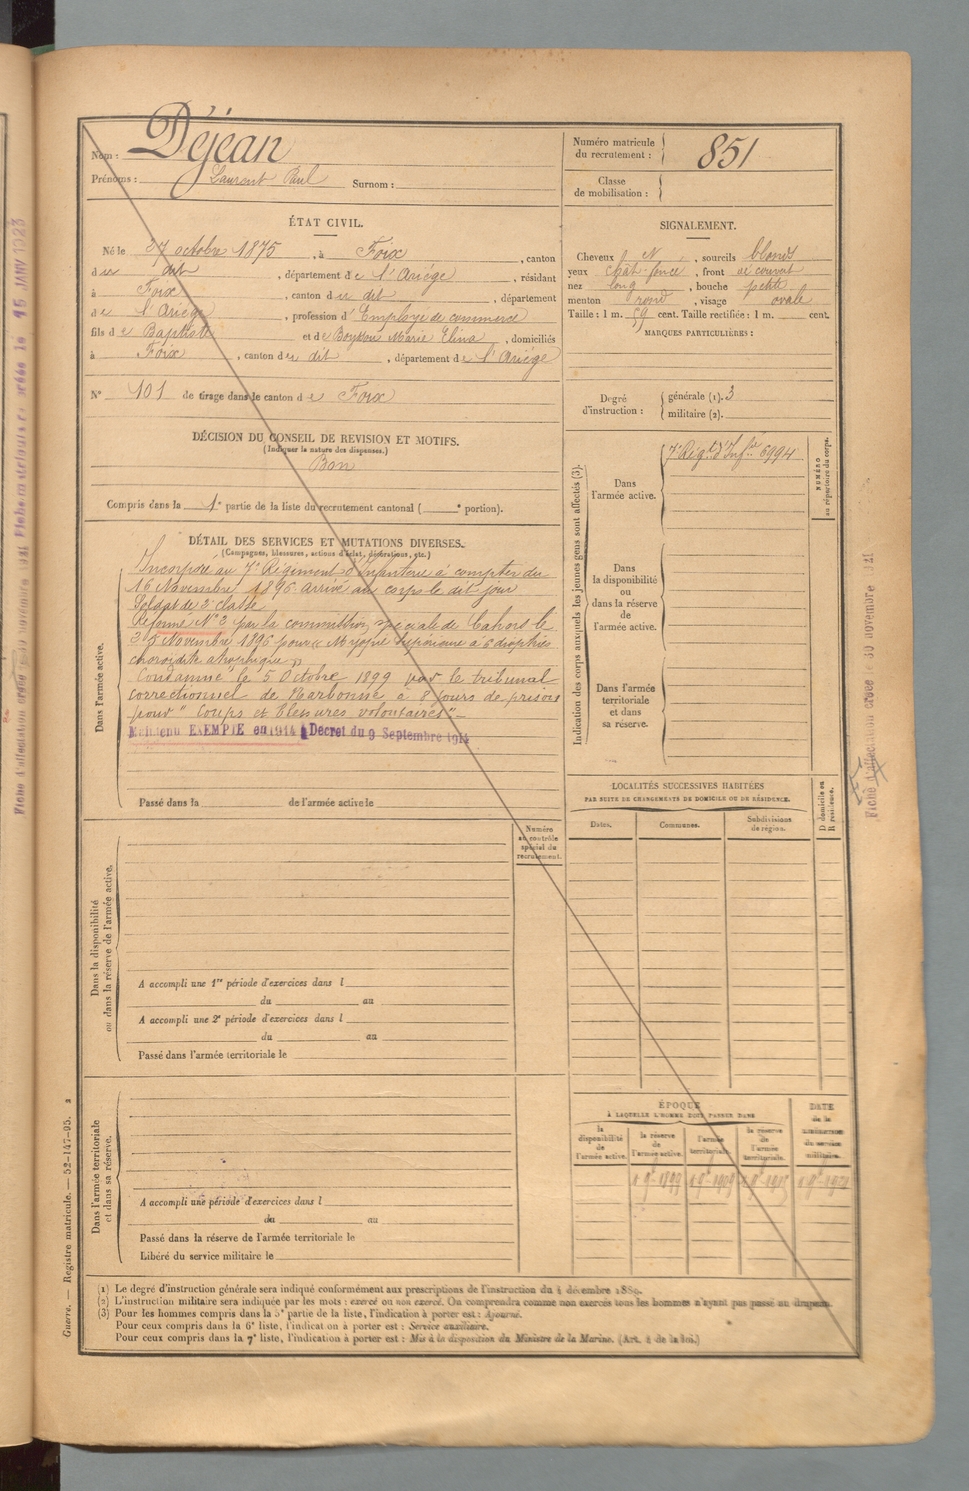 Nom : Déjean
Prénoms : Laurent Paul Surnom :
Numéro matricule du recrutement : 851
Classe de mobilisation :
ÉTAT CIVIL.
Né le 27 octobre 1875, à Foix, canton
du dit, département de l'Ariège, résidant
à Foix, canton du dit, département
de l'Ariège, profession d'Employé de commerce
fils de Baptiste et de Marie Elina, domiciliés
à Foix, canton du dit, département de l'Ariège
No 101 de tirage dans le canton de Foix
DÉCISION DU CONSEIL DE REVISION ET MOTIFS.
(Indiquer la nature des dispenses.)
Bon
Compris dans la 1e partie de la liste du recrutement cantonal ( e portion).
SIGNALEMENT.
Cheveux N, sourcils blonds
yeux chât. foncé, front
nez long, bouche petite
menton rond, visage ovale
Taille : 1 m. 59 cent. Taille rectifiée : 1 m. cent.
MARQUES PARTICULIÈRES :
Degré d'instruction : générale (1). 3
militaire (2).
DÉTAIL DES SERVICES ET MUTATIONS DIVERSES.
(Campagnes, blessures, actions d'éclat, décorations, etc.)
Dans l'armée active.
Incorporé au 7e Régiment d'Infanterie à compter du
16 Novembre 1896. arrivé au corps le dit jour
Soldat de 2e classe
Réformé No 2 par la commission spéciale de Cahors le
Novembre 1896 pour « Myopie supérieure à 6 dioptries
choroïdite atrophique »
Condamné le 5 Octobre 1899 par le tribunal
correctionnel de Narbonne à 8 jours de prison
pour " Coups et blessures volontaires"
Maintenu EXEMPTÉ en 1914 Décret du 9 Septembre 1914
Passé dans la de l'armée active le
Indication des corps auxquels les jeunes gens sont affectés (3).
NUMÉRO au répertoire du corps.
Dans l'armée active. 7e Régt d'Infie 6994
Dans la disponibilité ou dans la réserve de l'armée active.
Dans l'armée territoriale et dans sa réserve.
LOCALITÉS SUCCESSIVES HABITÉES
PAR SUITE DE CHANGEMENTS DE DOMICILE OU DE RÉSIDENCE.
Dates. Communes. Subdivisions de région. D domicile ou R résidence.
Numéro au contrôle spécial du recrutement.
Dans la disponibilité ou dans la réserve de l'armée active.
A accompli une 1re période d'exercices dans l
du au
A accompli une 2e période d'exercices dans l
du au
Passé dans l'armée territoriale le
Dans l'armée territoriale et dans sa réserve.
A accompli une période d'exercices dans l
du au
Passé dans la réserve de l'armée territoriale le
Libéré du service militaire le
ÉPOQUE
À LAQUELLE L'HOMME DOIT PASSER DANS
la disponibilité de l'armée active.
la réserve de l'armée active.
l'armée territoriale.
la réserve de l'armée territoriale.
DATE de la LIBÉRATION du service militaire.
(1) Le degré d'instruction générale sera indiqué conformément aux prescriptions de l'instruction du 4 décembre 1889.
(2) L'instruction militaire sera indiquée par les mots : exercé ou non exercé. On comprendra comme non exercés tous les hommes n'ayant pas passé au drapeau.
(3) Pour les hommes compris dans la 5e partie de la liste, l'indication à porter est : Ajourné.
Pour ceux compris dans la 6e liste, l'indication à porter est : Service auxiliaire.
Pour ceux compris dans la 7e liste, l'indication à porter est : Mis à la disposition du Ministre de la Marine. (Art. 4 de la loi.)
Guerre. — Registre matricule. — 52-147-95. 2
Fiche d'affectation créée le 30 novembre 1921
15 JANV 1923